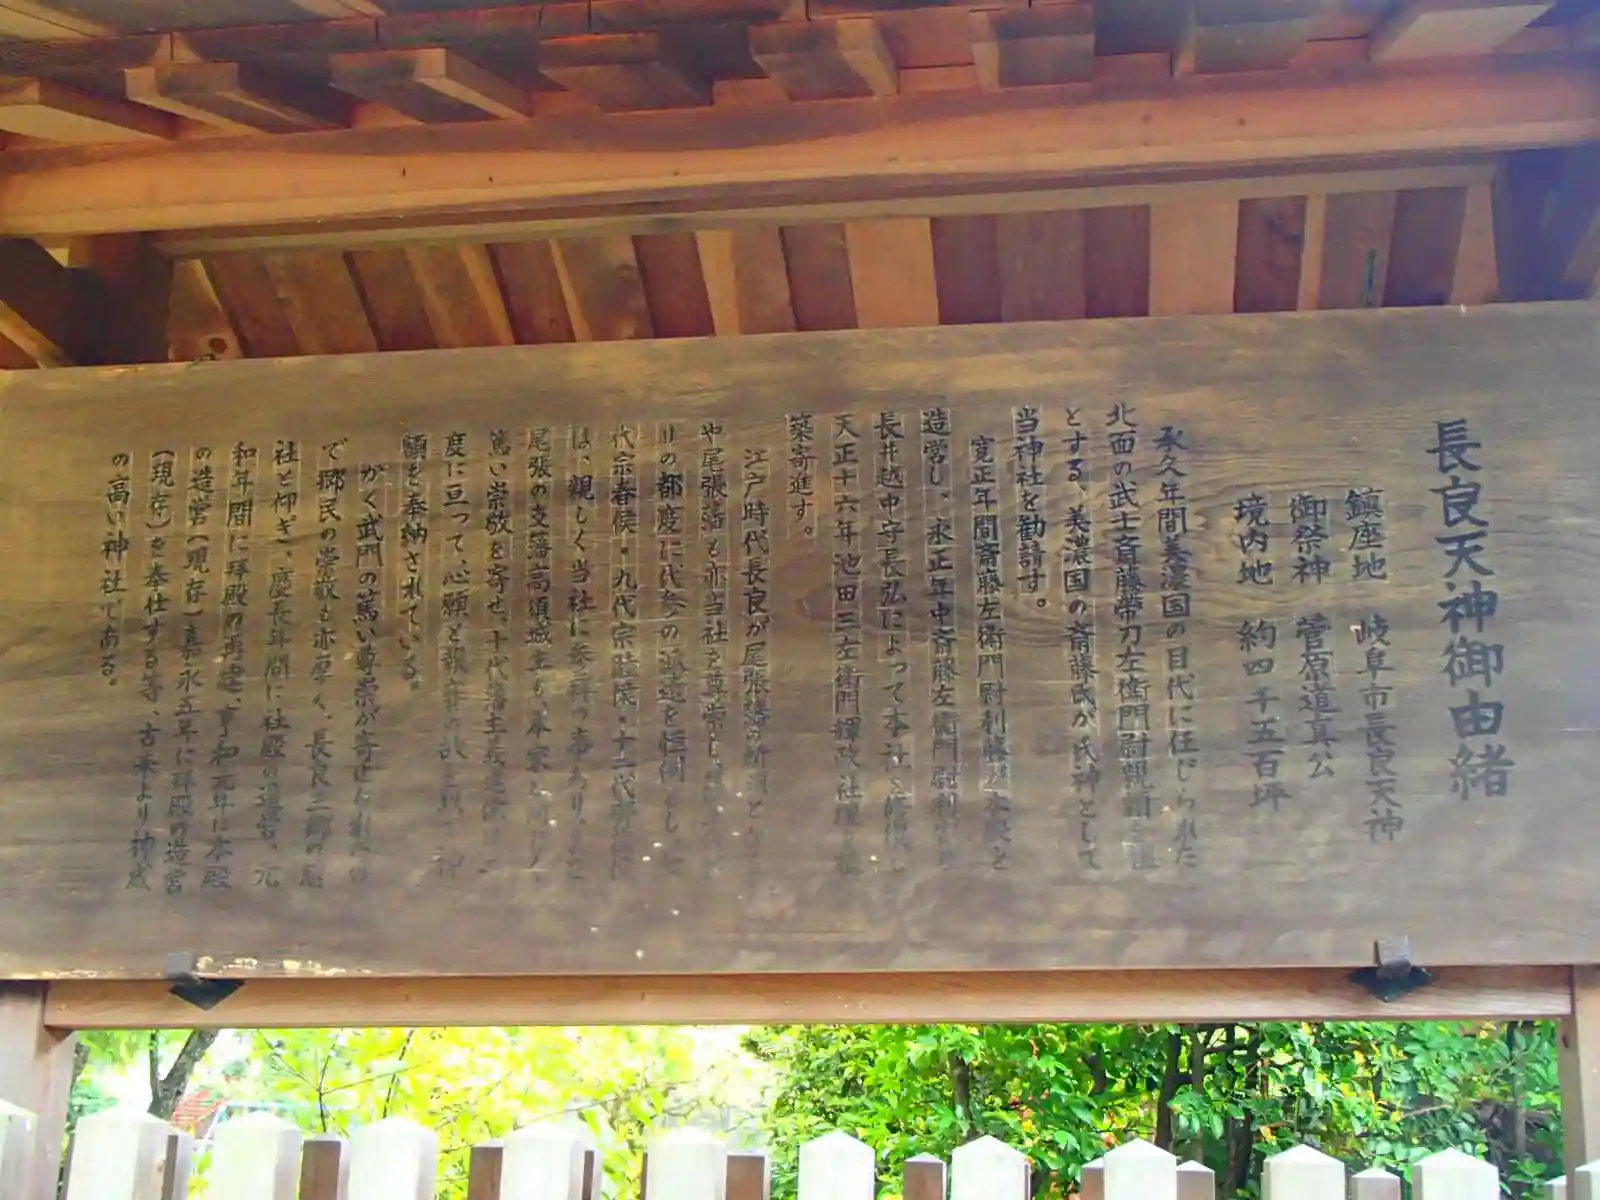 長良天神御由緒
鎮座地 岐阜市長良天神
御祭神 菅原道真公
境内地 約四千五百坪
承久年間美濃国の目代に任じられた
北面の武士斎藤帯刀左衛門尉親頼を祖
とする、美濃国の斎藤氏が氏神として
当神社を勧請す。
寛正年間斎藤左衛門尉利藤が本殿を
造営し、永正年中斎藤左衛門尉利
長井越中守長弘によって本社を修復し
天正十六年池田三左衛門輝政社壇を
築寄進す。
江戸時代長良が尾張藩の所領と
や尾張藩も亦当社を尊崇し
りの都度に代参の派遣を恒例とし、七
代宗春侯・九代宗睦侯・十二代
は、親しく当社に参拝の事あり
尾張の支藩高須城主も、本家と同じく
篤い崇敬を寄せ、十代藩主義建侯は
度に亘って、心願と報賽の 神
額を奉納されている。
かく武門の篤い尊崇が寄せられたの
で郷民の崇敬も亦厚く、長良三郷の
社と仰ぎ、慶長年間に社殿の造営、元
和年間に拝殿の再建、享和元年に本殿
の造営(現存)嘉永五年に拝殿の造営
(現存)を奉仕する等、古来より神威
の高い神社である。